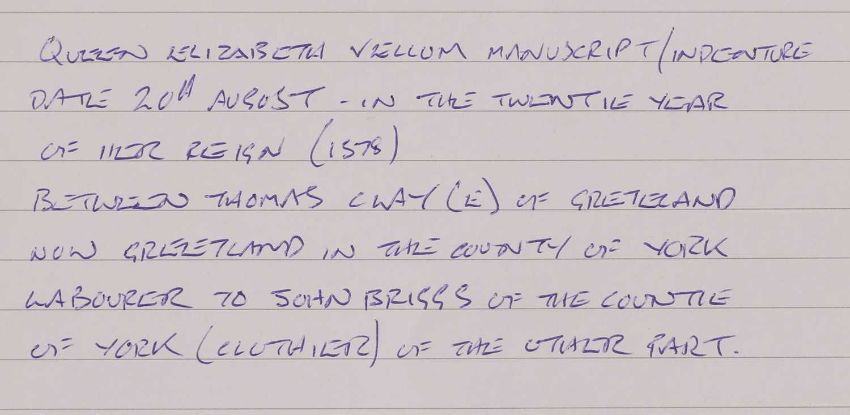 QUEEN ELIZABETH VELLUM MANUSCRIPT/INDENTURE
DATE 20th AUGUST - IN THE TWENTIE YEAR
OF HER REIGN (1578)
BETWEEN THOMAS CLAY(E) OF GRETELAND
NOW GREETLAND IN THE COUNTY OF YORK
LABOURER TO JOHN BRIGGS OF THE COUNTIE
OF YORK (CLOTHIER) OF THE OTHER PART.